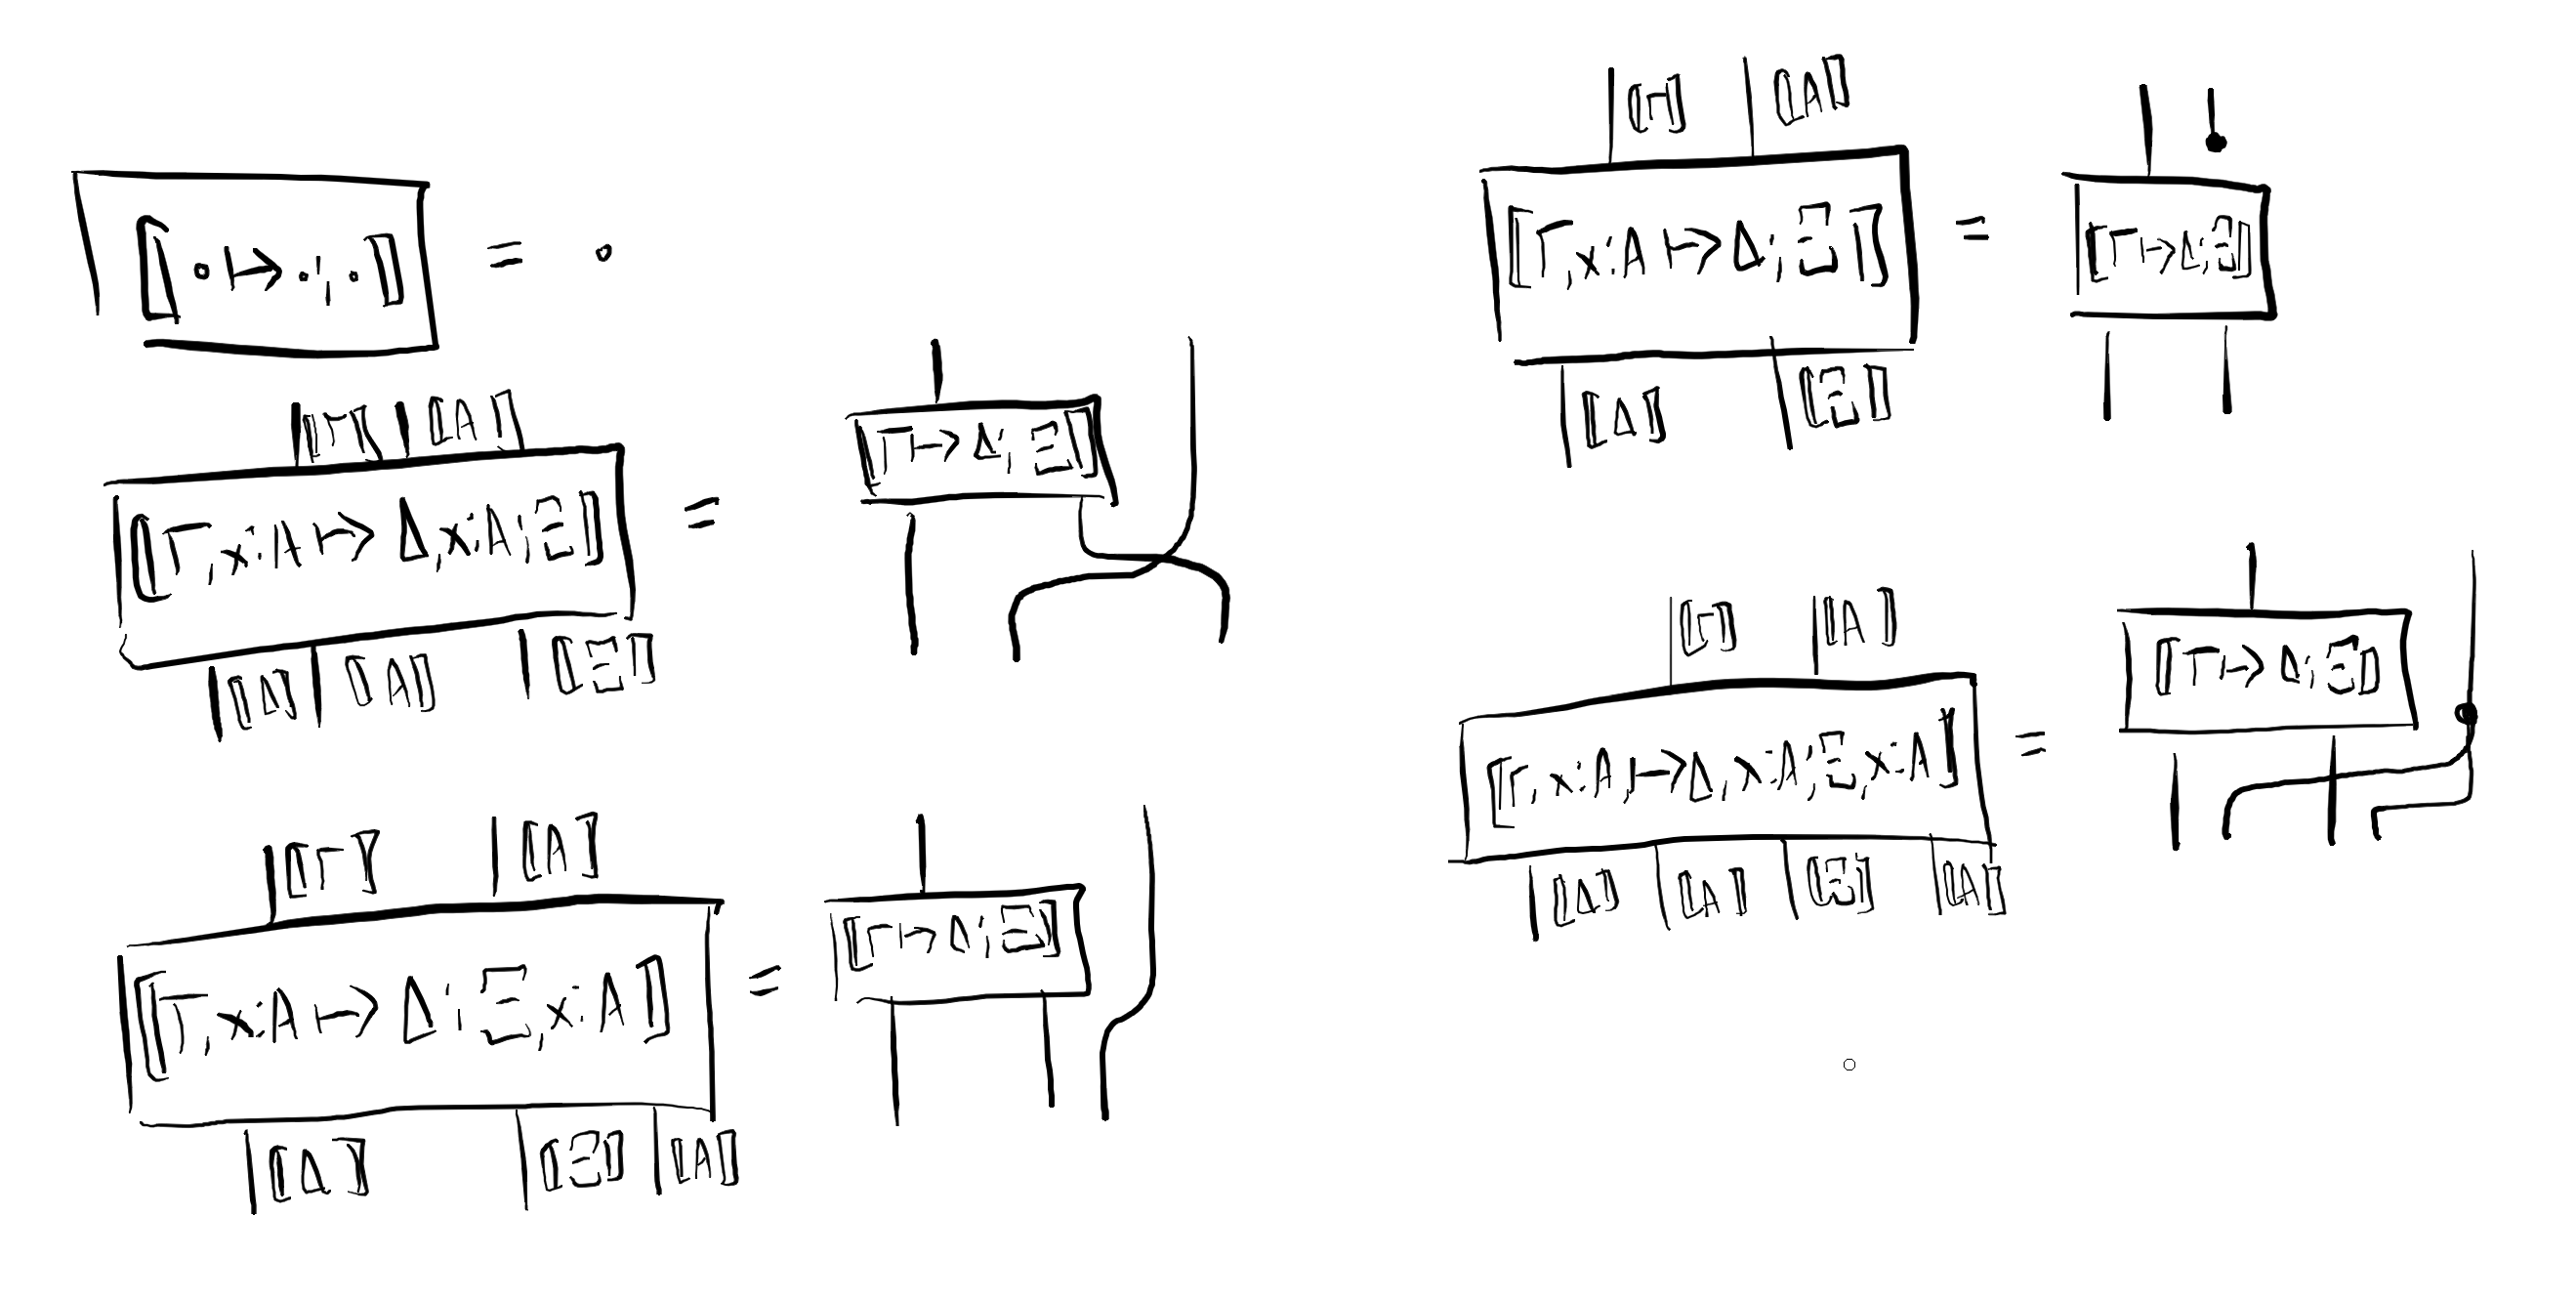 ⟦· ↦ ·; ·⟧ = ·
⟦Γ⟧ ⟦A⟧
⟦Γ, x:A ↦ Δ, x:A; Ξ⟧ = ⟦Γ ↦ Δ; Ξ⟧
⟦Δ⟧ ⟦A⟧ ⟦Ξ⟧
⟦Γ⟧ ⟦A⟧
⟦Γ, x:A ↦ Δ; Ξ, x:A⟧ = ⟦Γ ↦ Δ; Ξ⟧
⟦Δ⟧ ⟦Ξ⟧ ⟦A⟧
⟦Γ⟧ ⟦A⟧
⟦Γ, x:A ↦ Δ; Ξ⟧ = ⟦Γ ↦ Δ; Ξ⟧
⟦Δ⟧ ⟦Ξ⟧
⟦Γ⟧ ⟦A⟧
⟦Γ, x:A ↦ Δ, x:A; Ξ, x:A⟧ = ⟦Γ ↦ Δ; Ξ⟧
⟦Δ⟧ ⟦A⟧ ⟦Ξ⟧ ⟦A⟧